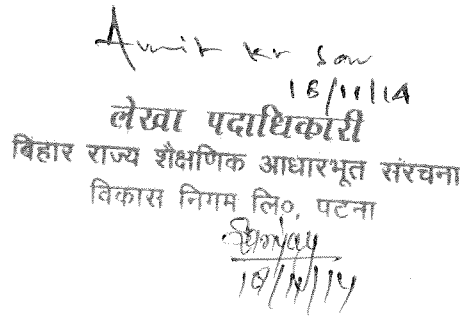 Amit kr Saw
18/11/14
लेखा पदाधिकारी
बिहार राज्य शैक्षणिक आधारभूत संरचना
विकास निगम लि०, पटना
Sanjay
18/11/14